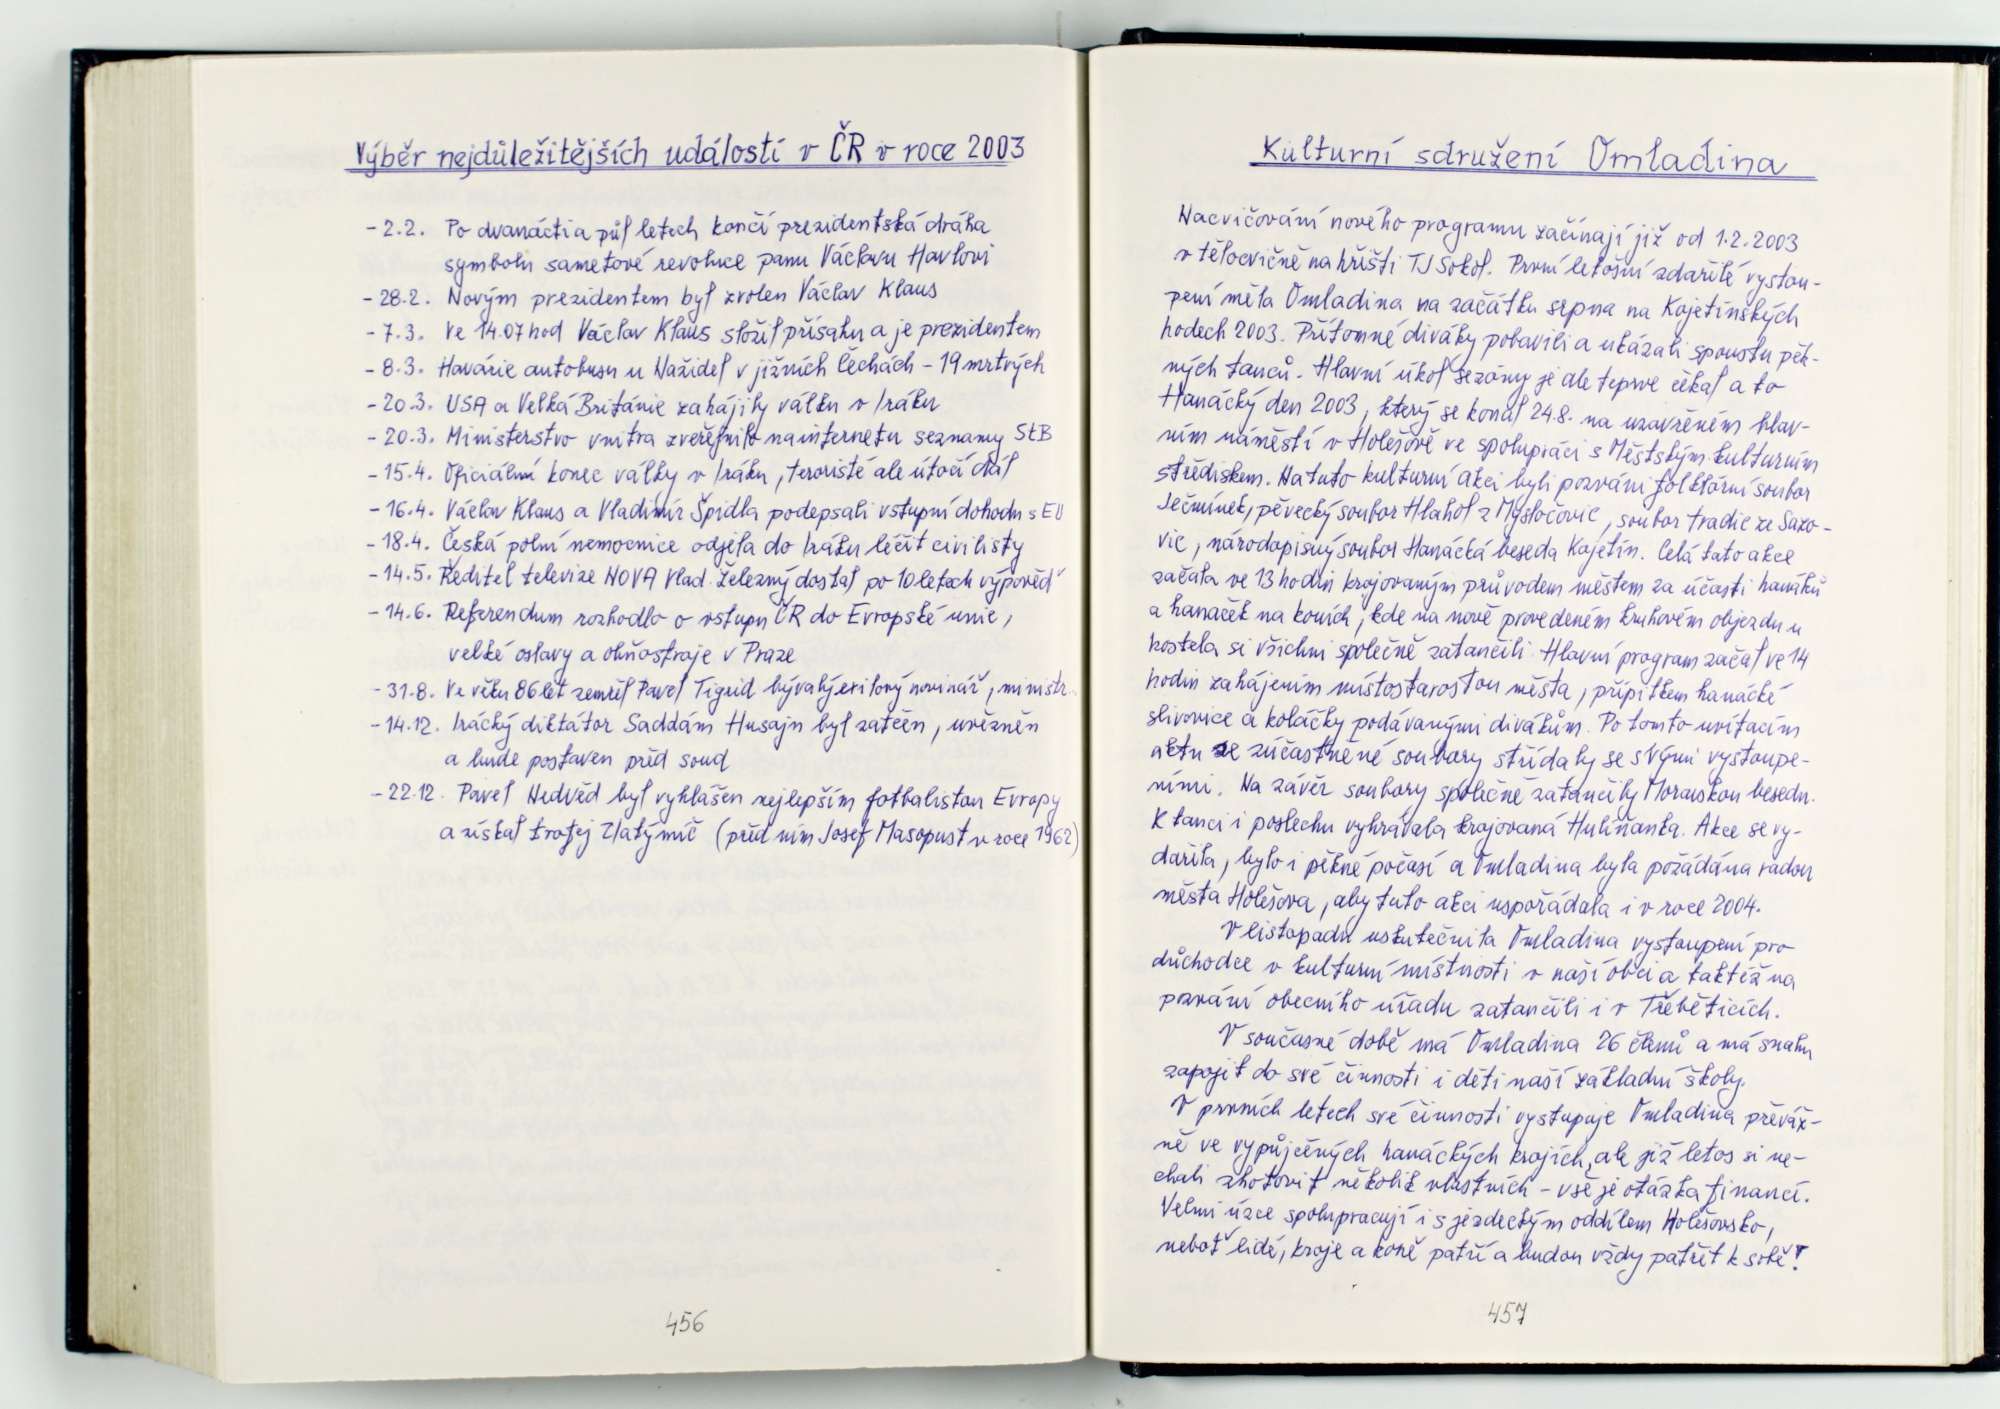 Výběr nejdůležitějších událostí v ČR v roce 2003
- 2.2. Po dvanácti a půl letech končí prezidentská dráha
symbolu sametové revoluce panu Václavu Havlovi
- 28.2. Novým prezidentem byl zvolen Václav Klaus
- 7.3. Ve 14.07 hod Václav Klaus složil přísahu a je prezidentem
- 8.3. Havárie autobusu u Nažidel v jižních Čechách - 19 mrtvých
- 20.3. USA a Velká Británie zahájily válku v Iráku
- 20.3. Ministerstvo vnitra zveřejnilo na internetu seznamy StB
- 15.4. Oficiální konec války v Iráku, teroristé ale útočí dál
- 16.4. Václav Klaus a Vladimír Špidla podepsali vstupní dohodu s EU
- 18.4. Česká polní nemocnice odjela do Iráku léčit civilisty
- 14.5. Ředitel televize NOVA Vlad. Železný dostal po 10 letech výpověď
- 14.6. Referendum rozhodlo o vstupu ČR do Evropské unie,
velké oslavy a ohňostroje v Praze
- 31.8. Ve věku 86 let zemřel Pavel Tigrid bývalý exilový novinář, ministr
- 14.12. Irácký diktátor Saddám Husajn byl zatčen, uvězněn
a bude postaven před soud
- 22.12. Pavel Nedvěd byl vyhlášen nejlepším fotbalistou Evropy
a získal trofej Zlatý míč (před ním Josef Masopust v roce 1962)
456
Kulturní sdružení Omladina
Nacvičování nového programu začínají již od 1.2.2003
v tělocvičně na hřišti TJ Sokol. První letošní zdařilé vystou-
pení měla Omladina na začátku srpna na Kojetínských
hodech 2003. Přítomné diváky pobavili a ukázali spoustu pěk-
ných tanců. Hlavní úkol sezóny je ale teprve čekal a to
Hanácký den 2003, který se konal 24.8. na uzavřeném hlav-
ním náměstí v Holešově ve spolupráci s Městským kulturním
střediskem. Na tuto kulturní akci byli pozváni folklórní soubor
Ječmínek, pěvecký soubor Hlahol z Mysločovic, soubor tradic ze Sazo-
vic, národopisný soubor Hanácká beseda Kojetín. Celá tato akce
začala ve 13 hodin krojovaným průvodem městem za účasti hanáků
a hanaček na koních, kde na nově provedeném kruhovém objezdu u
kostela si všichni společně zatančili. Hlavní program začal ve 14
hodin zahájením místostarostou města, přípitkem hanácké
slivovice a koláčky podávanými divákům. Po tomto uvítacím
aktu se zúčastněné soubory střídaly se svými vystoupe-
ními. Na závěr soubory společně zatančily Moravskou besedu.
K tanci i poslechu vyhrávala krojovaná Hulíňanka. Akce se vy-
dařila, bylo i pěkné počasí a Omladina byla požádána radou
města Holešova, aby tuto akci uspořádala i v roce 2004.
V listopadu uskutečnila Omladina vystoupení pro
důchodce v kulturní místnosti v naší obci a taktéž na
pozvání obecního úřadu zatančili i v Třeběticích.
V současné době má Omladina 26 členů a má snahu
zapojit do své činnosti i děti naší základní školy.
V prvních letech své činnosti vystupuje Omladina převáž-
ně ve vypůjčených hanáckých krojích, ale již letos si ne-
chali zhotovit několik vlastních - vše je otázka financí.
Velmi úzce spolupracují i s jezdeckým oddílem Holešovsko,
neboť lidé, kroje a koně patří a budou vždy patřit k sobě!
457